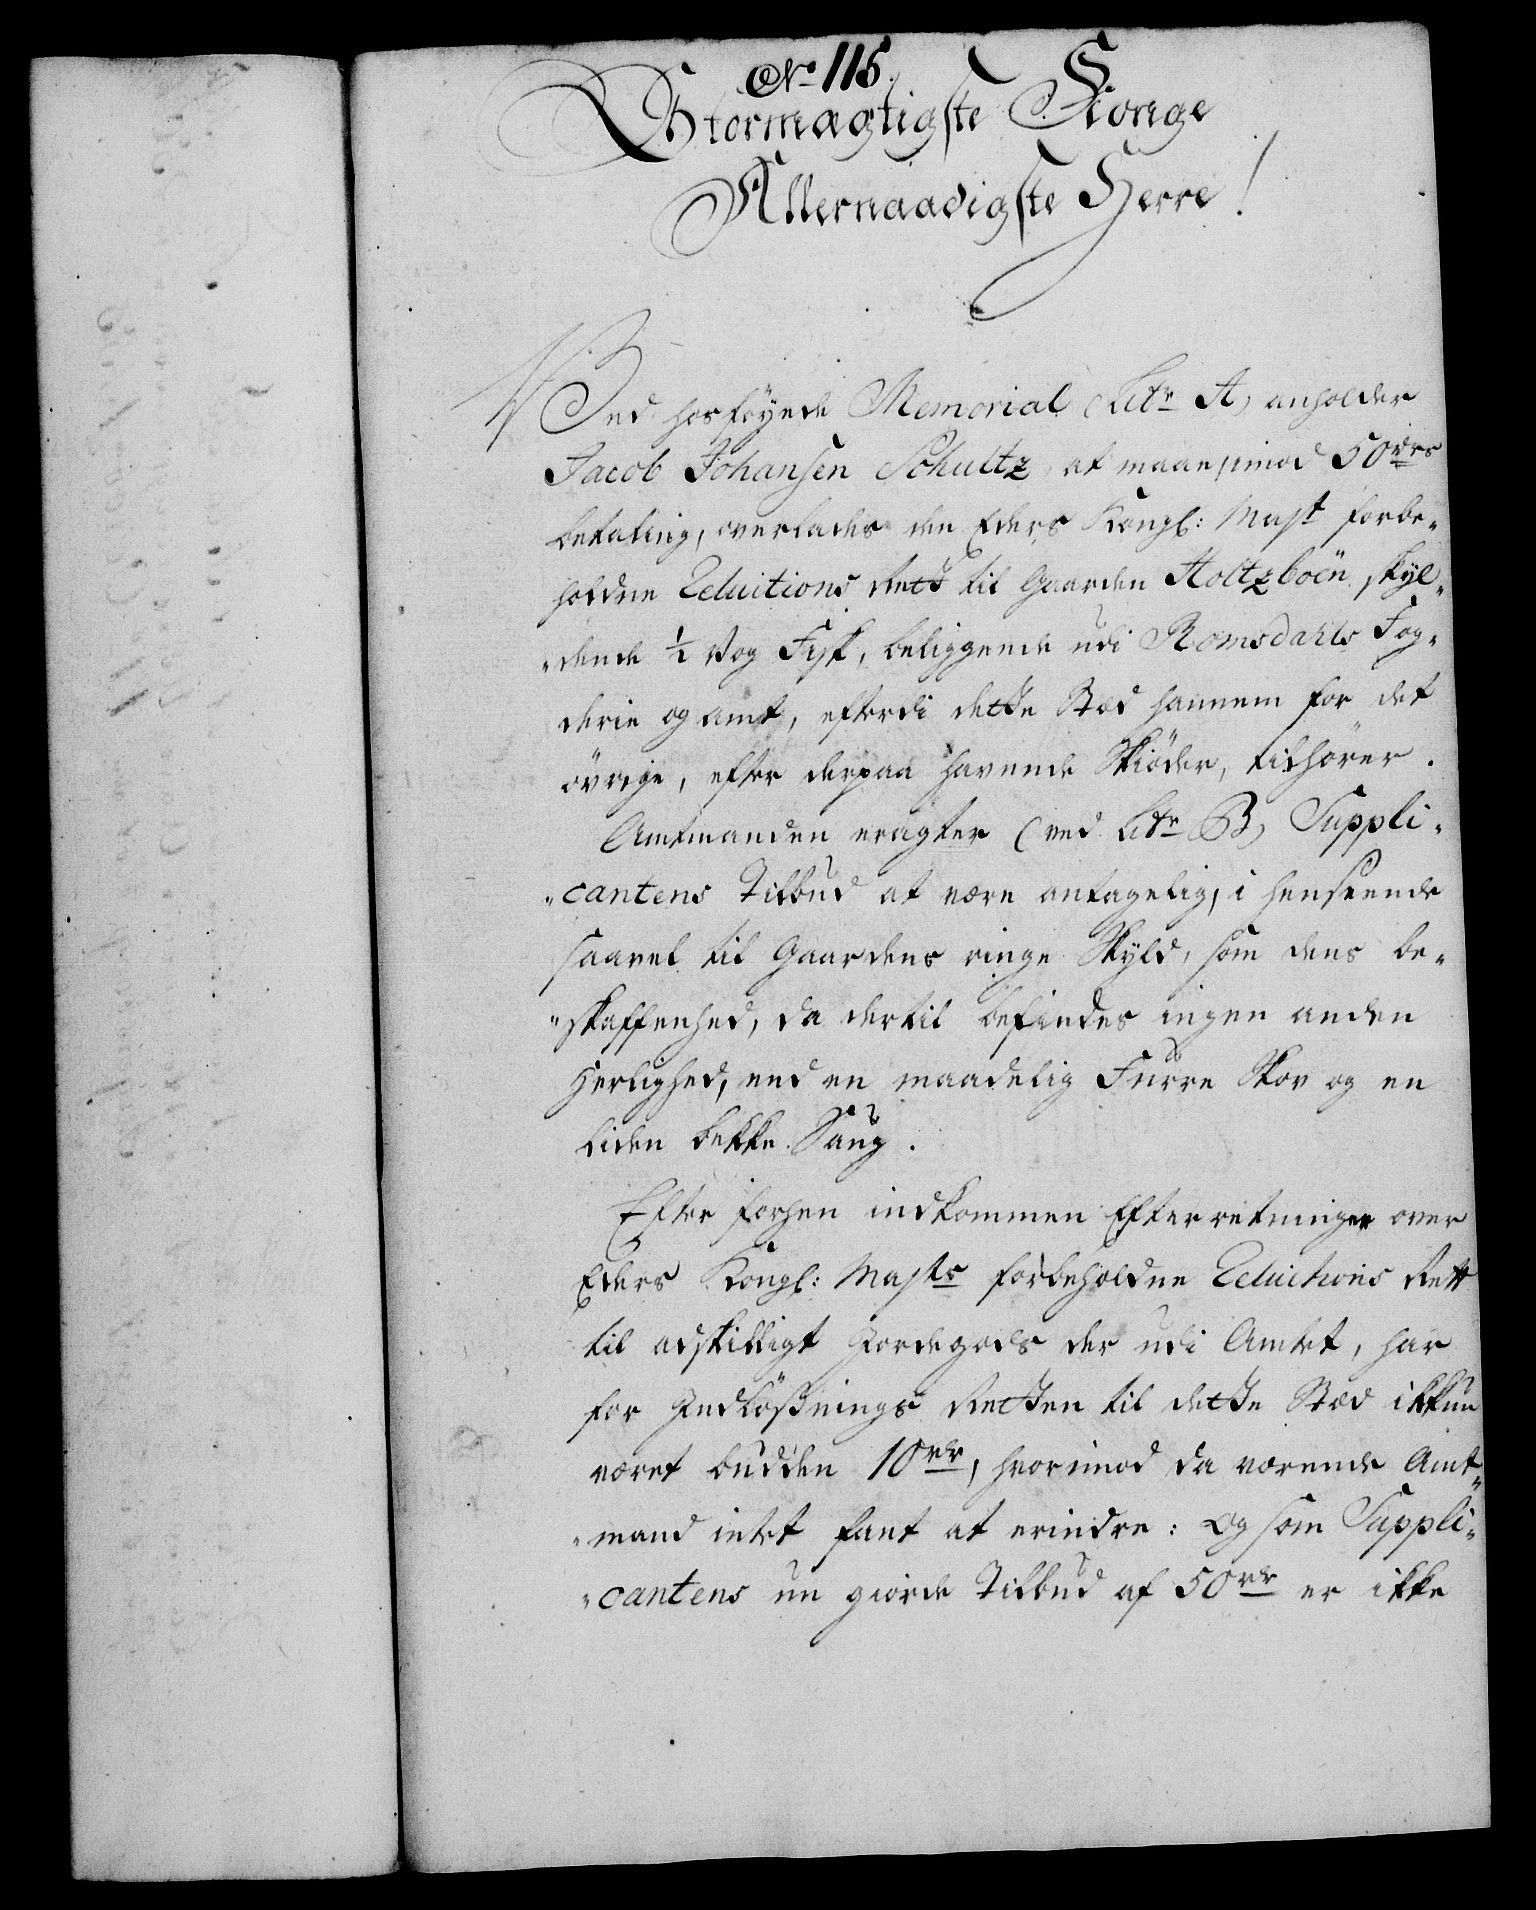 No 115.
Stormægtigste Konge
Allernaadigste Herre!
Ved hosføyede Memorial (Litr A) anholder
Jacob Johansen Schultz at maae, imod 50rdrs
betaling, overlades den Eders Kongl: Mayt forbe-
holdne Reluitions Rett til Gaarden Holtzboen skyl-
dende 1/2 Vog Fisk, beliggende udi Romsdahls Fog-
derie og amt, efterdi dette Stæd hannem for det
övrige, efter derpaa havende Skiöder, tilhörer.
Amtmanden eragter (ved Litr B) Suppli-
cantens Tilbud at være antagelig, i henseende
saavel til Gaardens ringe Skyld, som dens be-
skaffenhed, da dertil befindes ingen anden
Herlighed, end en maadelig Furre Skov og en
liden bekke Saug.
Efter forhen indkommen Efterretninger over
Eders Kongl: Mayts forbeholdne Reluitions Rett
til adskilligt Jordegods der udi Amtet, har
for Indlösnings Retten til dette Stæd ikkun
været budden 10rdr, hvorimod da værende Amt-
mand intet fant at erindre: Og som Suppli-
cantens nu giörde Tilbud af 50rdr er ikke